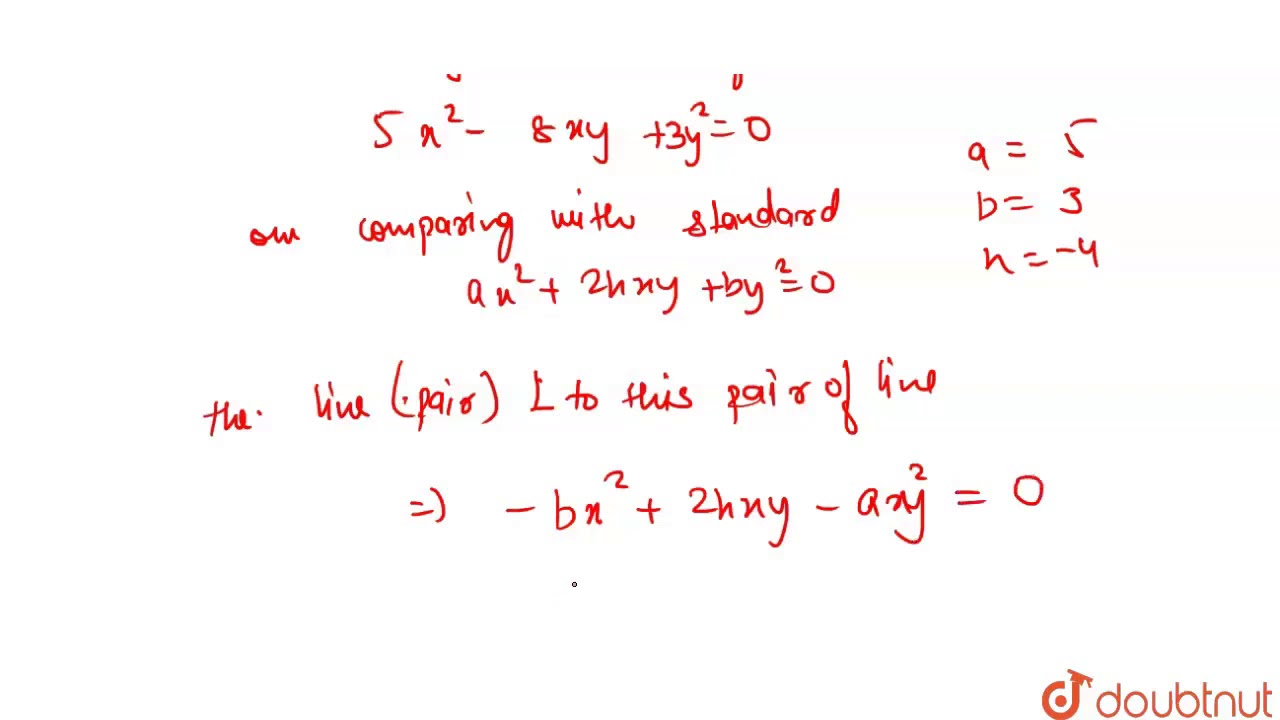 5x² - 8xy + 3y² = 0
a = 5
b = 3
h = -4
on comparing with standard
ax² + 2hxy + by² = 0
the. line (pair) ⊥ to this pair of line
=) - bx² + 2hxy - axy² = 0
doubtnut